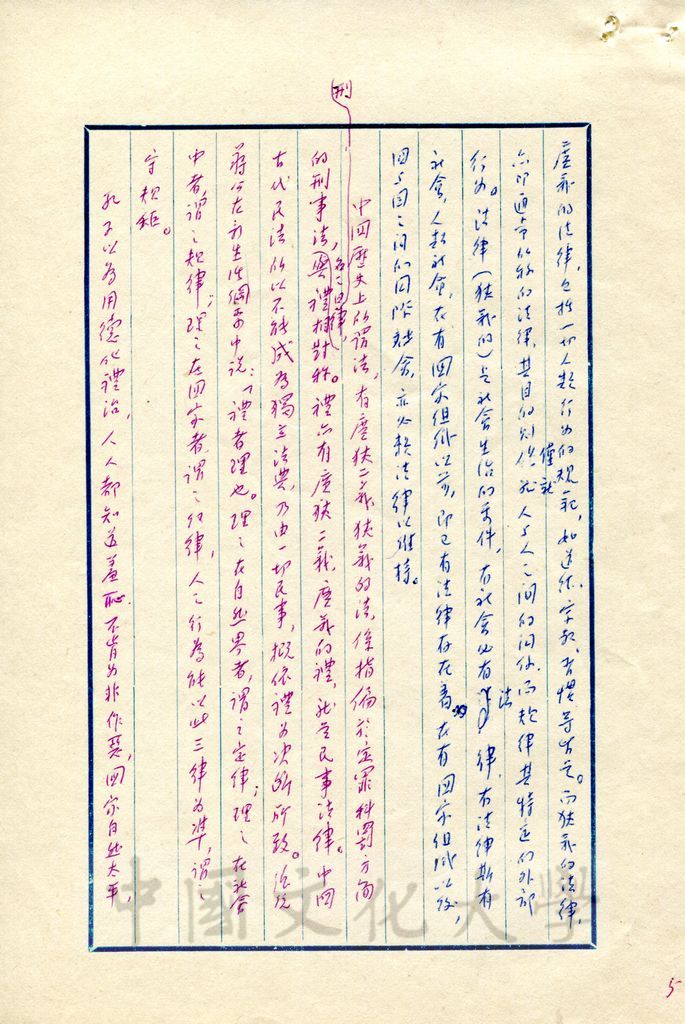 廣義的法律，包括一切人類行為的規範，如道德、宗教、習慣等皆是。而狹義的法律，
亦即通常所稱的法律，其目的則僅就人與人之間的關係，而規律其特定的外部
行為。法律（狹義的）是社會生活的條件，有社會必有法律，有法律斯有
社會，人類社會，在有國家組織以前，即已有法律存在，在有國家組成以後，
國與國之間的國際社會，亦必賴法律以維持。
中國歷史上所謂法，有廣狹二義，狹義的法，係指偏於定罪科罰方面
的刑事法，名之曰刑律，與禮相對稱。禮亦有廣狹二義，廣義的禮，就是民事法律。中國
古代民法所以不能成為獨立法典，乃由一切民事，概依禮為決斷所致。總統
蔣公在新生活綱要中說：「禮者理也。理之在自然界者，謂之定律；理之在社會
中者，謂之規律；理之在國家者，謂之紀律，人之行為能以此三律為準，謂之
守規矩。
孔子以為用德化禮治，人人都知道羞恥，不肯為非作惡，國家自然太平，
5
中國文化大學